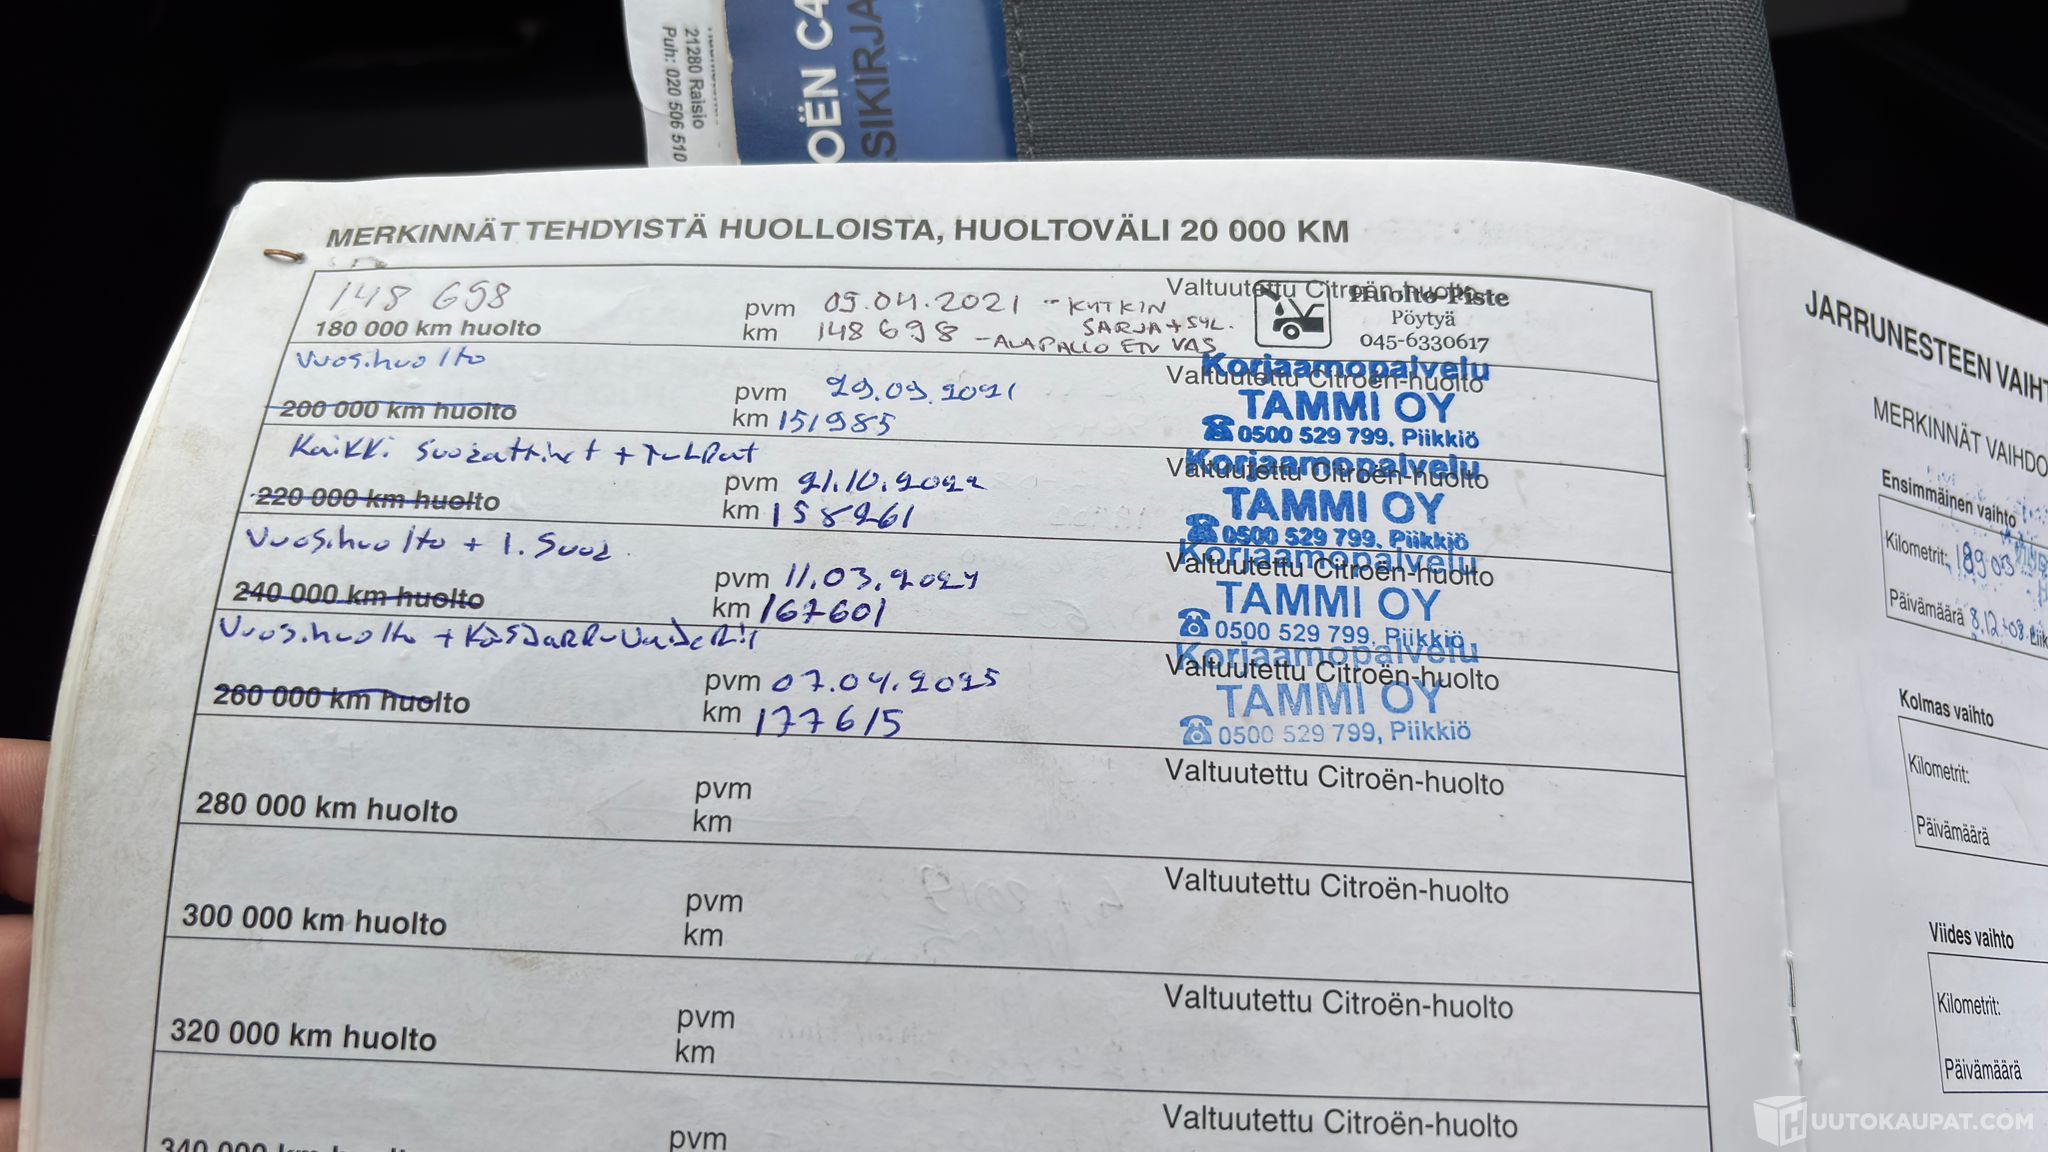 21280 Raisio
Puh: 020 506 510
OËN C4
SIKIRJA
MERKINNÄT TEHDYISTÄ HUOLLOISTA, HUOLTOVÄLI 20 000 KM
148 698
180 000 km huolto
pvm 09.04.2021 - KYTKIN
SARJA + SYL.
km 148 698 - ALAPALLO ETU VAS
Valtuutettu Citroën-huolto
Huolto-Piste
Pöytyä
045-6330617
Vuosihuolto
200 000 km huolto
pvm 29.09.2021
km 151985
Valtuutettu Citroën-huolto
Korjaamopalvelu
TAMMI OY
0500 529 799, Piikkiö
Kaikki suodattimet + tulpat
220 000 km huolto
pvm 21.10.2022
km 158261
Valtuutettu Citroën-huolto
Korjaamopalvelu
TAMMI OY
0500 529 799, Piikkiö
Vuosihuolto + I. Suod
240 000 km huolto
pvm 11.03.2024
km 167601
Valtuutettu Citroën-huolto
Korjaamopalvelu
TAMMI OY
0500 529 799, Piikkiö
Vuosihuolto + Käsijarruvaijerit
260 000 km huolto
pvm 07.04.2025
km 177615
Valtuutettu Citroën-huolto
Korjaamopalvelu
TAMMI OY
0500 529 799, Piikkiö
280 000 km huolto
pvm
km
Valtuutettu Citroën-huolto
300 000 km huolto
pvm
km
Valtuutettu Citroën-huolto
320 000 km huolto
pvm
km
Valtuutettu Citroën-huolto
340 000 km huolto
pvm
Valtuutettu Citroën-huolto
JARRUNESTEEN VAIHT
MERKINNÄT VAIHDO
Ensimmäinen vaihto
Kilometrit: 18903
Päivämäärä 8.12-08
Kolmas vaihto
Kilometrit:
Päivämäärä
Viides vaihto
Kilometrit:
Päivämäärä
HUUTOKAUPAT.COM